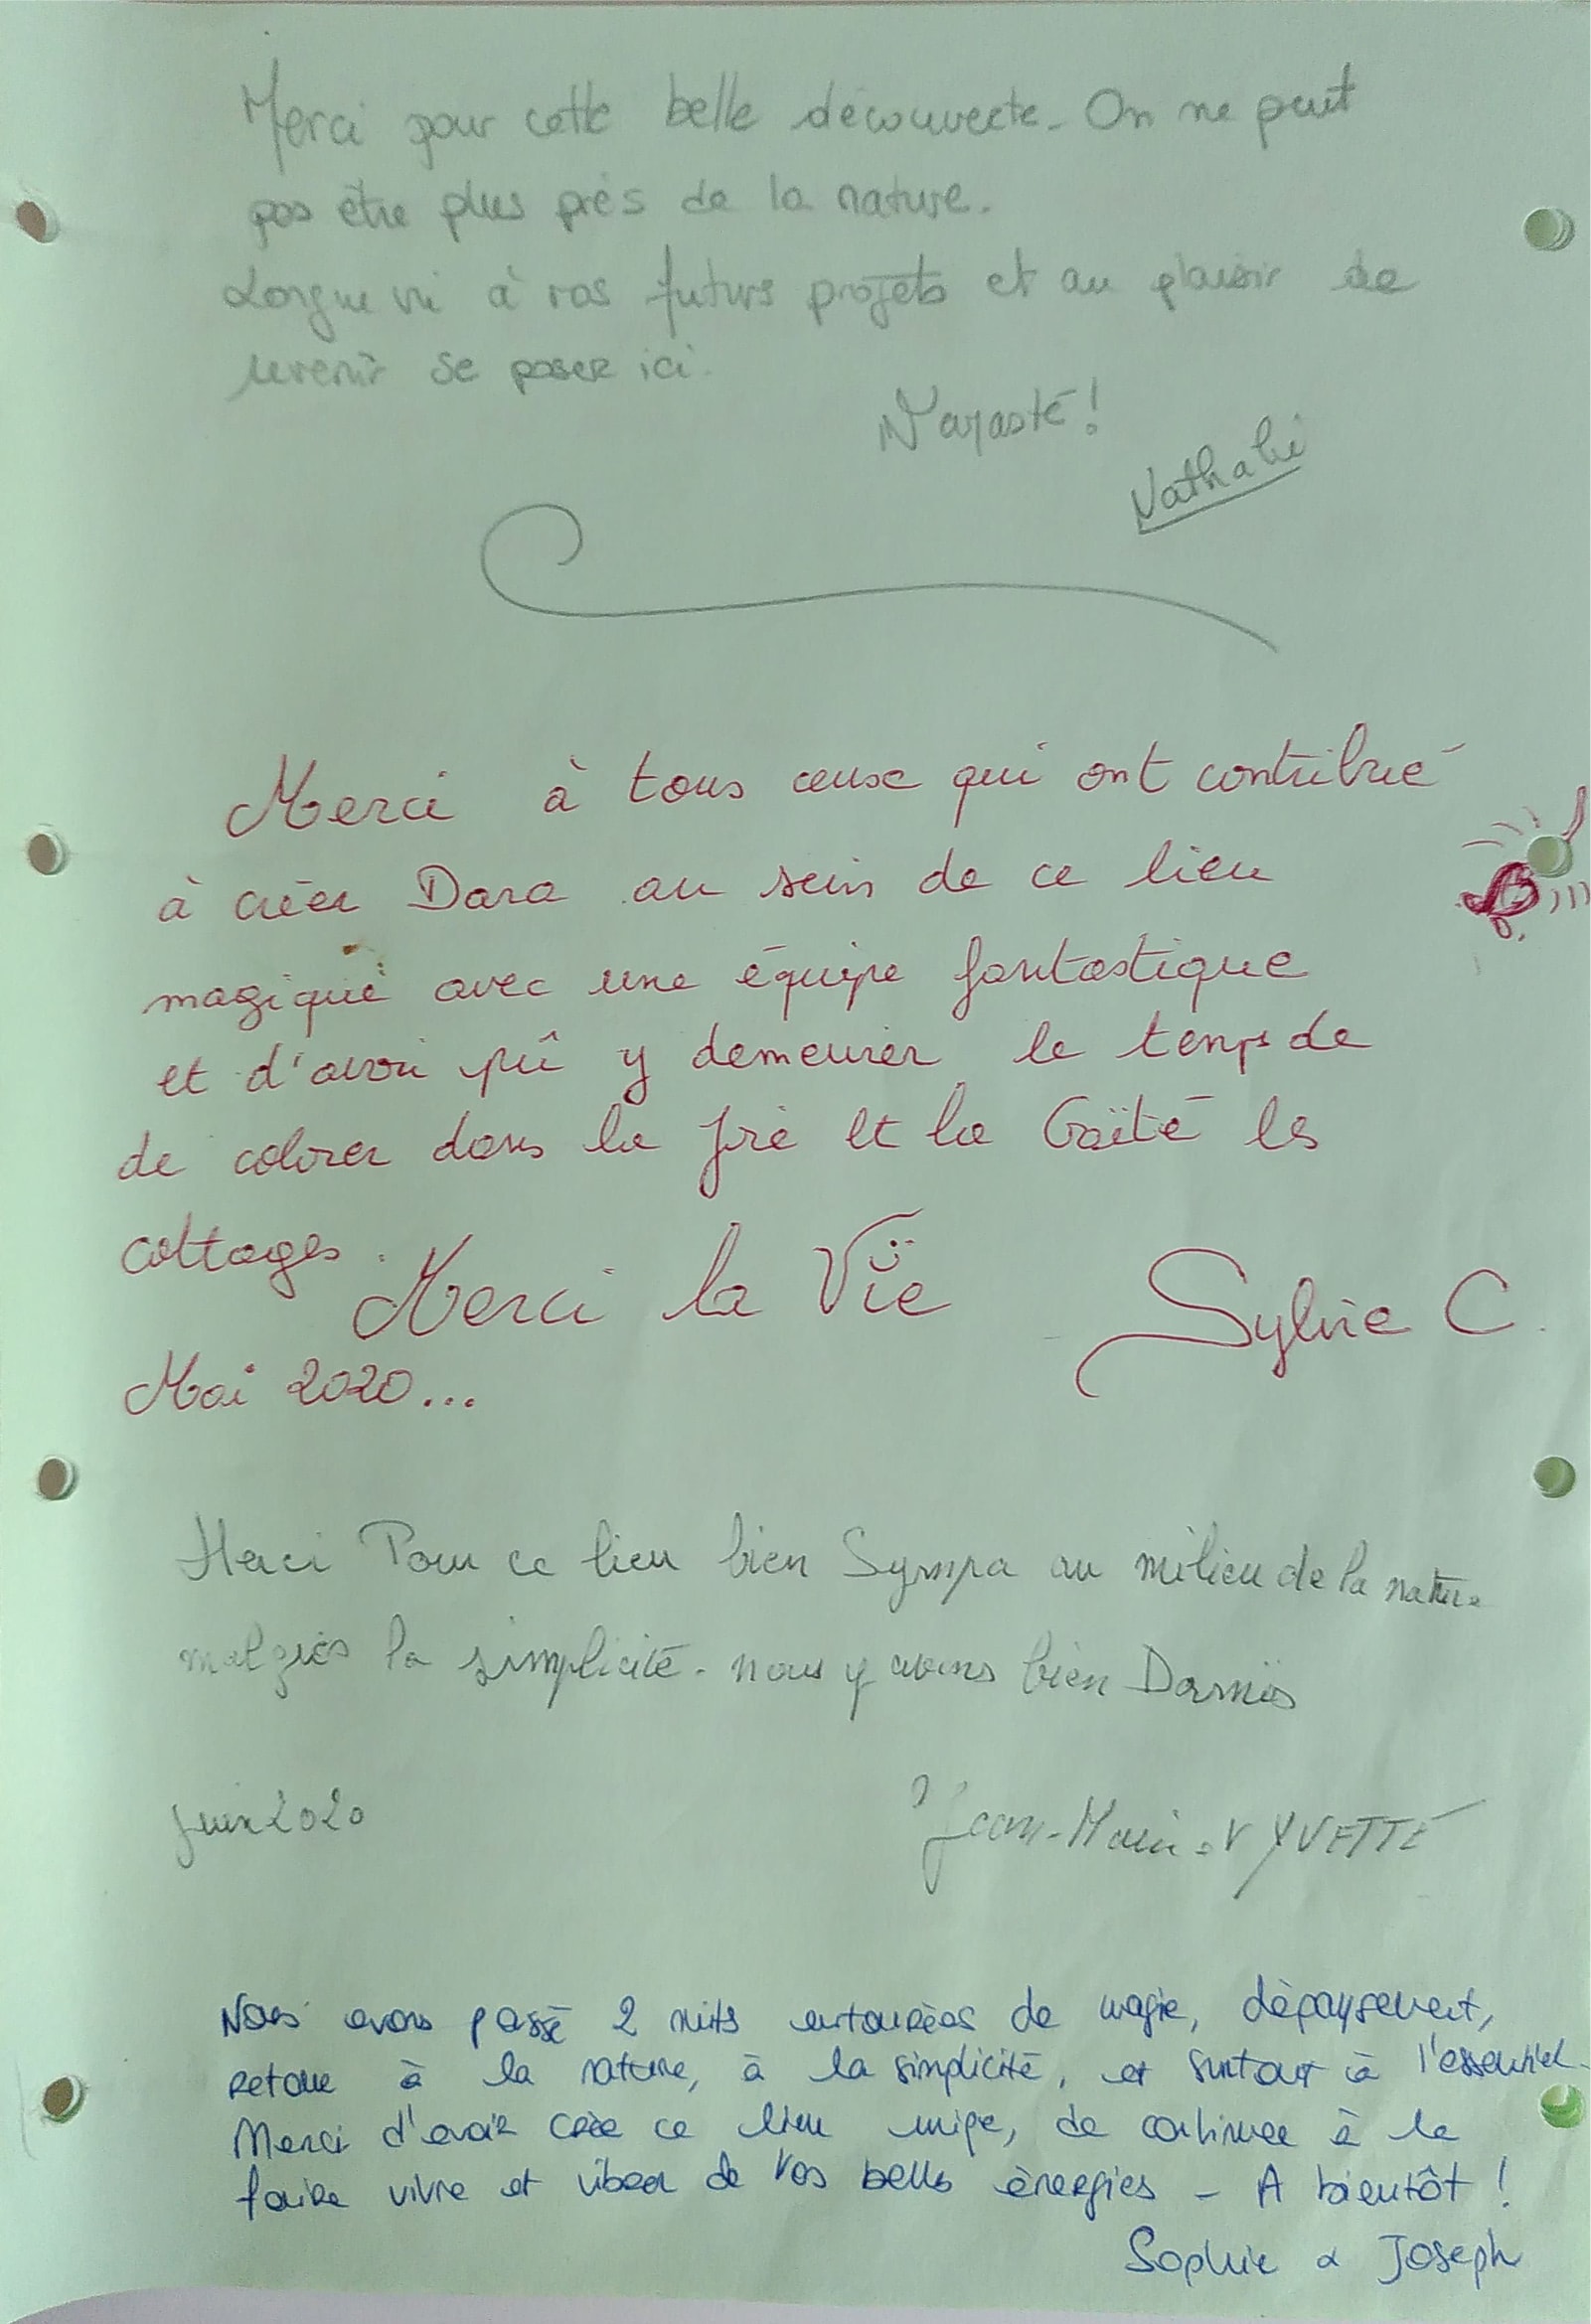 Merci pour cette belle découverte. On ne peut
pas être plus près de la nature.
Longue vie à vos futurs projets et au plaisir de
revenir se poser ici.
Namasté !
Nathalie
Merci à tous ceux qui ont contribué
à créer Dara au sein de ce lieu
magique avec une équipe fantastique
et d'avoir pû y demeurer le temps de
de colorer dans la joie et la Gaïté les
cottages. Merci la Vie Sylvie C.
Mai 2020...
Merci Pour ce lieu bien Sympa au milieu de la nature
malgrès la simplicité. nous y avons bien Dormis
Juin 2020
Jean-Marie YVETTE
Nous avons passé 2 nuits entourées de magie, dépaysement,
retour à la nature, à la simplicité, et surtout à l'essentiel.
Merci d'avoir créé ce lieu unique, de continuer à le
faire vivre et vibrer de vos belles énergies - A bientôt !
Sophie & Joseph